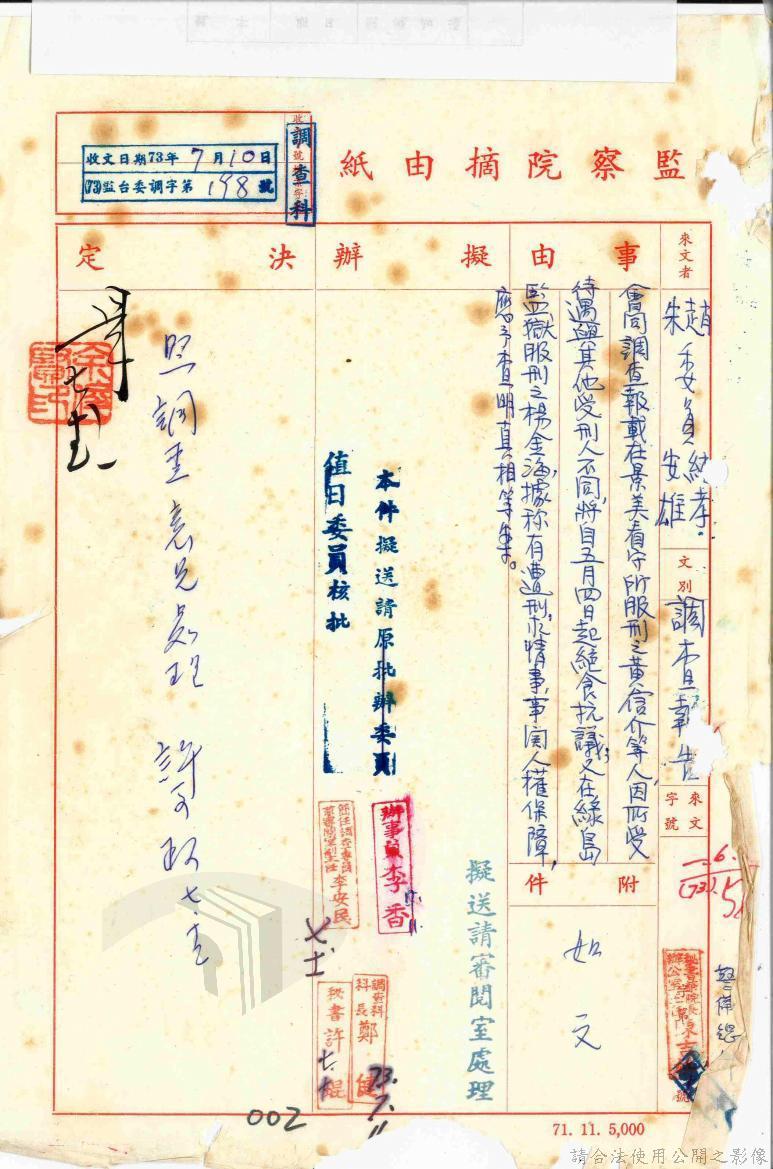 監察院摘由紙
調查科
收文日期73年7月10日
(73)監台委調字第198號
來文者
趙委員純孝
朱安雄
文別
調查報告
來文
字號
事由
會同調查報載在景美看守所服刑之黃信介等人,因所受
待遇與其他受刑人不同,將自五月四日起絕食抗議;又在綠島
監獄服刑之楊金海,據稱有遭刑求情事,事関人權保障,
應予查明真相等案。
附件
如文
擬辦
擬送請審閱室處理
本件擬送請原批辦委員
值日委員核批
辦事員李香
李安民
調查科
科長鄭健
秘書許
73.7.11
決定
照調查意見處理
002
71. 11. 5,000
請合法使用公開之影像